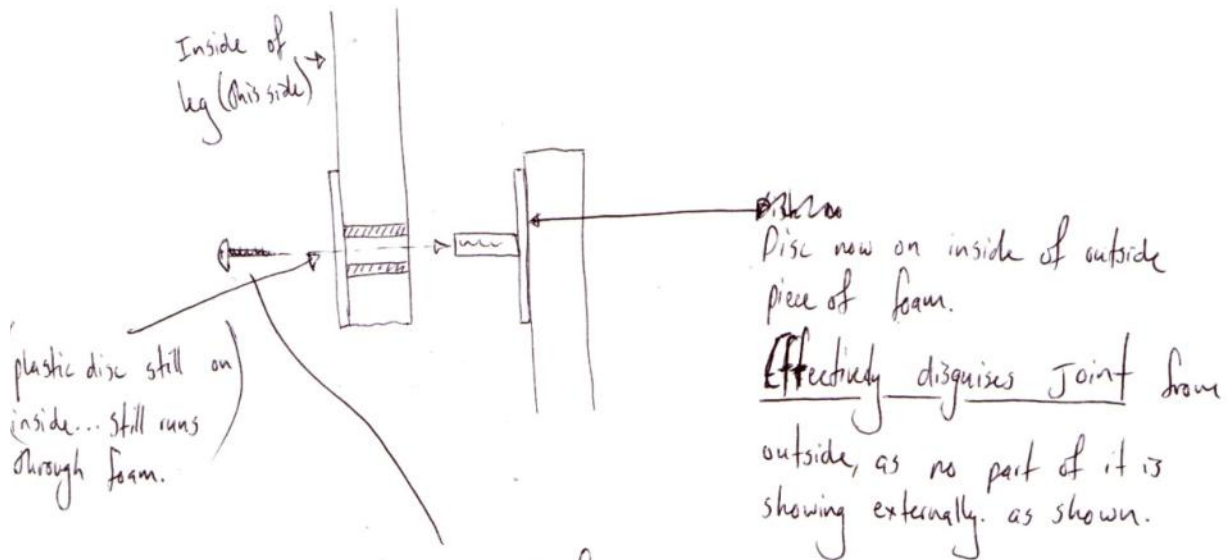 Inside of
leg (this side)
plastic disc still on
inside... still runs
through foam.
Disc now on inside of outside
piece of foam.
Effectively disguises joint from
outside, as no part of it is
showing externally. as shown.